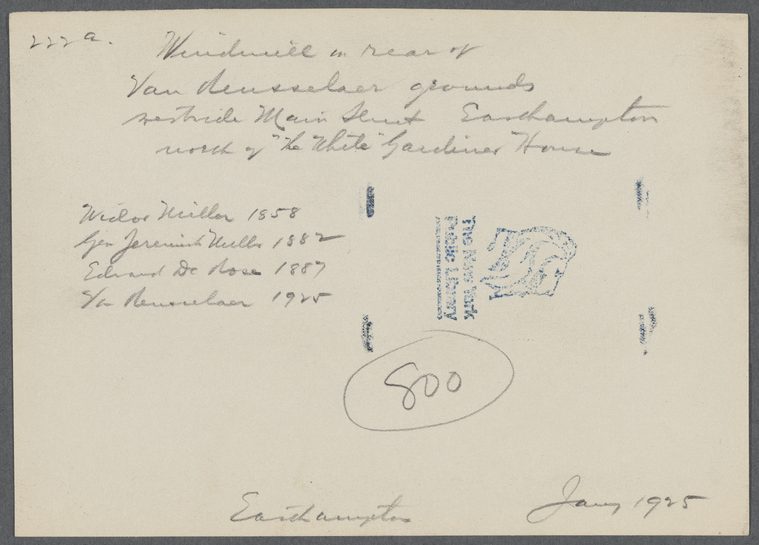 222a.
Windmill in rear of
Van Rensselaer grounds
westside Main Street Easthampton
north of "The White" Gardiner House
Miller 1858
Gen Jeremiah Miller 1882
Edward De Rose 1887
Van Rensselaer 1925
The New York
Public Library
800
Easthampton
Jany 1925